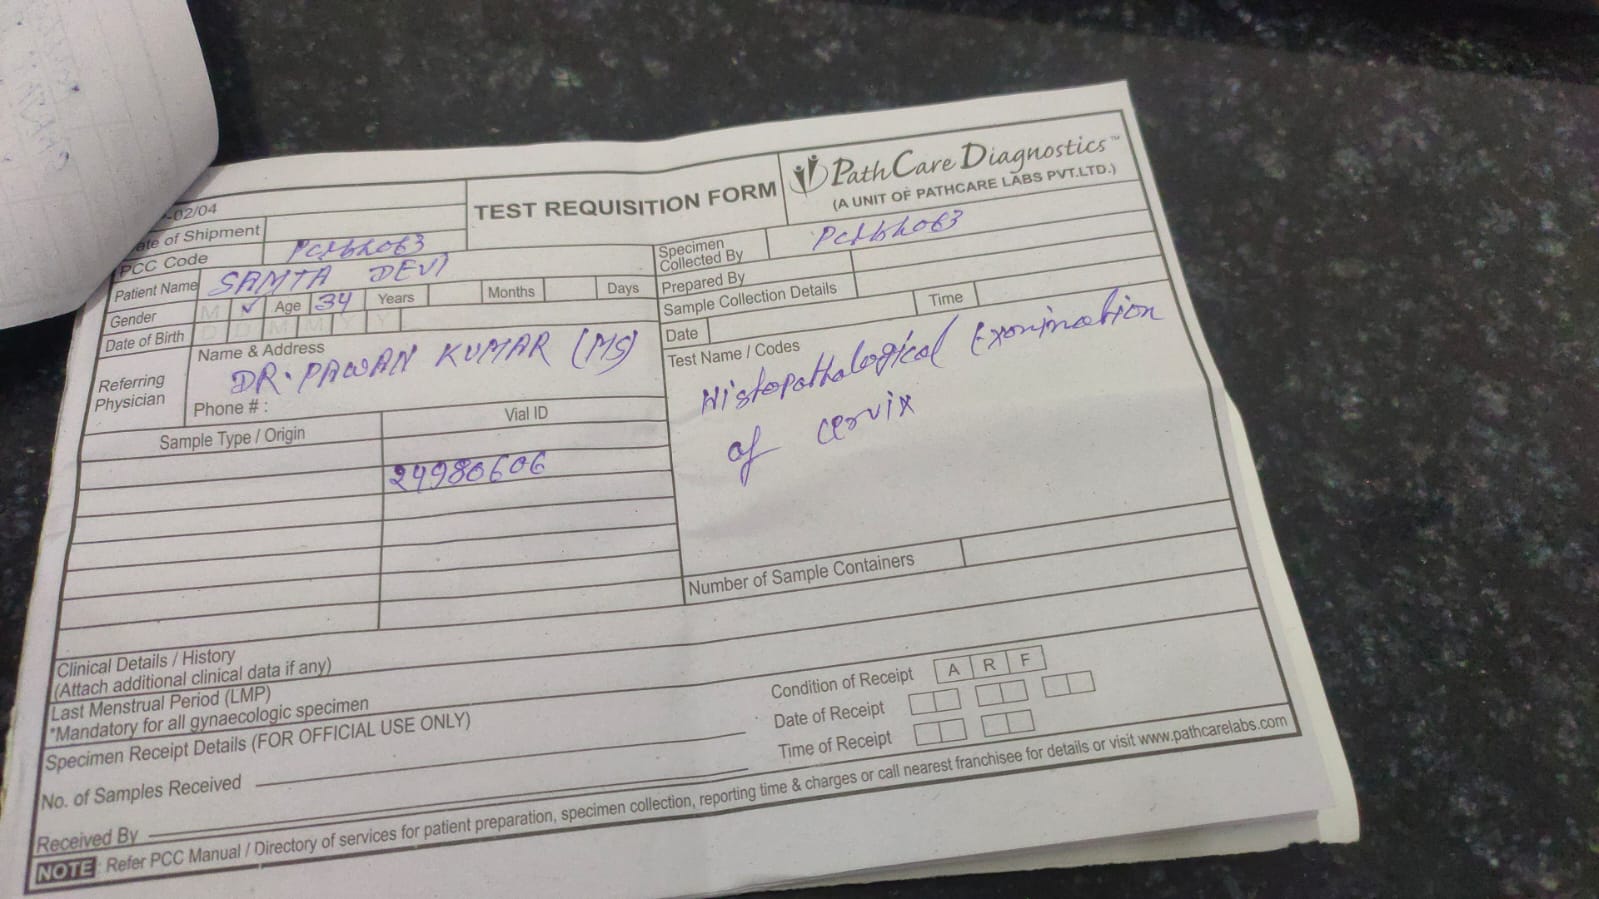 -02/04
TEST REQUISITION FORM
PathCare Diagnostics™
(A UNIT OF PATHCARE LABS PVT.LTD.)
ate of Shipment
PCC Code
Patient Name SAMTA DEVI
Gender M ✓ Age 34 Years Months Days
Date of Birth D D M M Y Y
Referring Physician
Name & Address
DR. PAWAN KUMAR (MS)
Phone # :
Specimen Collected By
Prepared By
Sample Collection Details
Date Time
Test Name / Codes
Histopathological Exomination
of cervix
Sample Type / Origin Vial ID
24980606
Number of Sample Containers
Clinical Details / History
(Attach additional clinical data if any)
Last Menstrual Period (LMP)
*Mandatory for all gynaecologic specimen
Specimen Receipt Details (FOR OFFICIAL USE ONLY)
No. of Samples Received
Received By
Condition of Receipt A R F
Date of Receipt
Time of Receipt
NOTE : Refer PCC Manual / Directory of services for patient preparation, specimen collection, reporting time & charges or call nearest franchisee for details or visit www.pathcarelabs.com